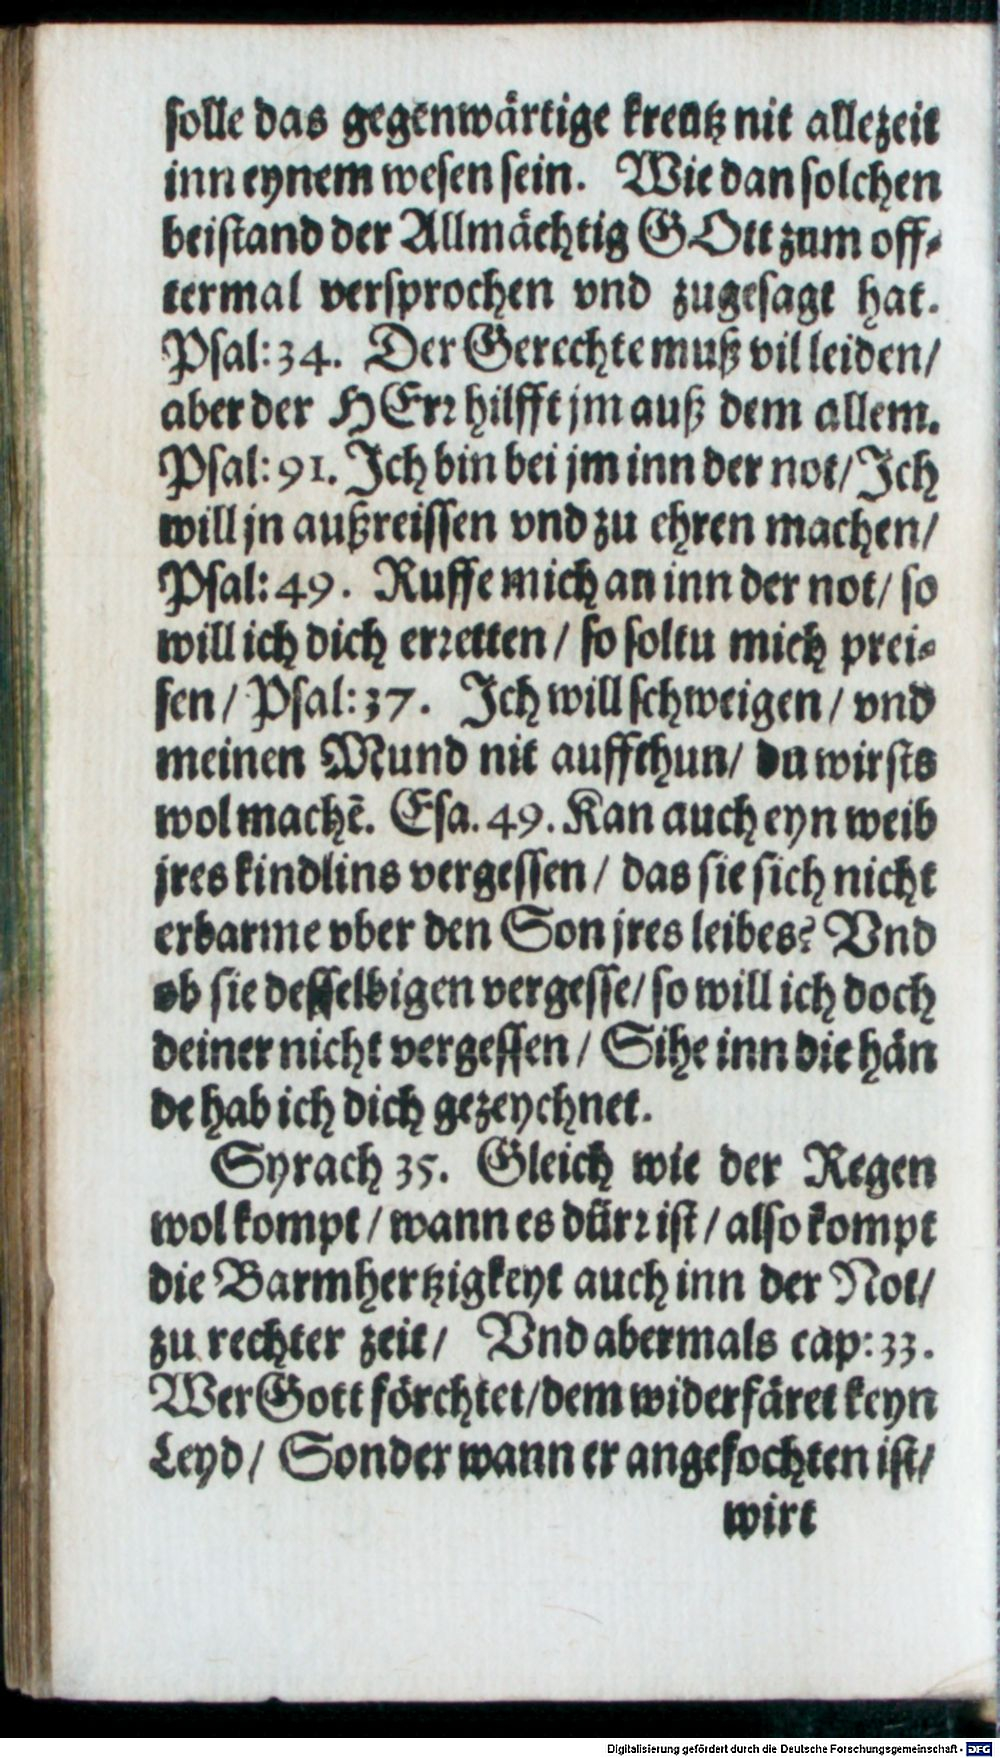 solle das gegenwärtige kreutz nit allezeit
inn eynem wesen sein. Wie dan solchen
beistand der Allmächtig GOtt zum off-
termal versprochen vnd zugesagt hat.
Psal: 34. Der Gerechte muß vil leiden/
aber der HErr hilfft jm auß dem allem.
Psal: 91. Ich bin bei jm inn der not/ Ich
will jn außreissen vnd zu ehren machen/
Psal: 49. Ruffe mich an inn der not/ so
will ich dich erretten / so soltu mich prei-
sen / Psal: 37. Ich will schweigen / vnd
meinen Mund nit auffthun/ du wirsts
wol machē. Esa. 49. Kan auch eyn weib
jres kindlins vergessen / das sie sich nicht
erbarme vber den Son jres leibes? Vnd
ob sie desselbigen vergesse/ so will ich doch
deiner nicht vergessen / Sihe inn die hän
de hab ich dich gezeychnet.
Syrach 35. Gleich wie der Regen
wol kompt / wann es dürr ist / also kompt
die Barmhertzigkeyt auch inn der Not/
zu rechter zeit/ Vnd abermals cap: 33.
Wer Gott förchtet/ dem widerfäret keyn
Leyd/ Sonder wann er angefochten ist/
wirt
Digitalisierung gefördert durch die Deutsche Forschungsgemeinschaft - DFG